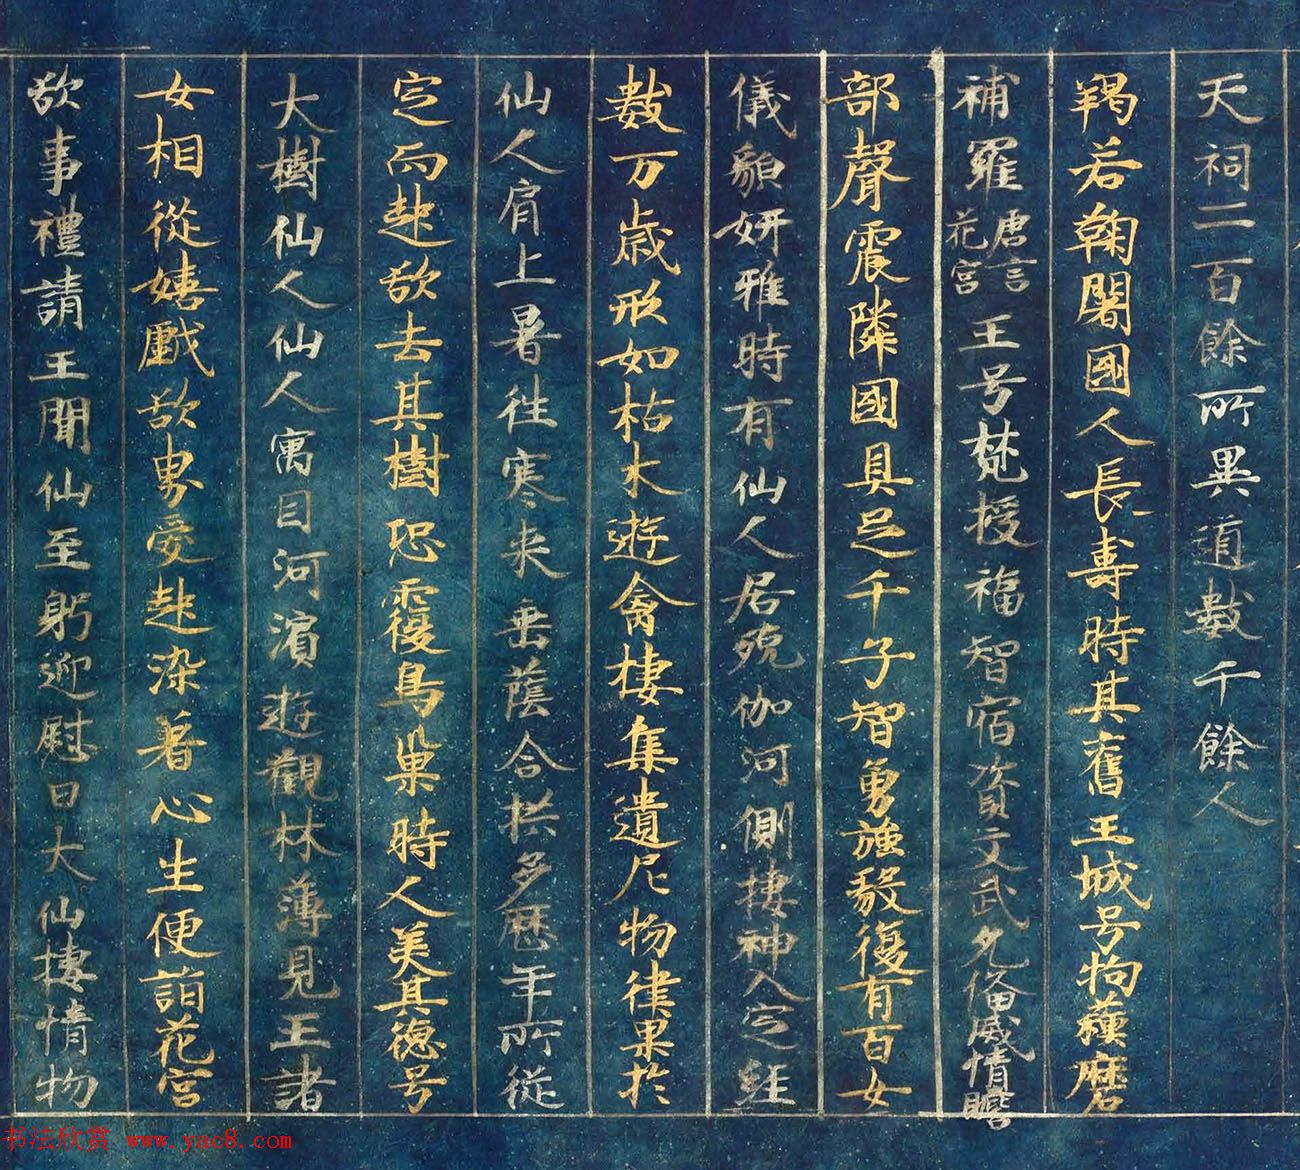 天祠二百餘所異道數千餘人
羯若鞠闍國人長壽時其舊王城号拘蘓磨
補羅唐言花宮王号梵授福智宿資文武允俻威懾贍
部聲震隣國具足千子智勇強毅復有百女
儀貌妍雅時有仙人居殑伽河側棲神入定經
數万歲形如枯木遊禽棲集遺尼拘律果於
仙人肩上暑往寒来垂蔭合拱多歷年所從
定而起欲去其樹恐覆鳥巢時人美其德号
大樹仙人仙人寓目河濱遊觀林薄見王諸
女相從嬉戲欲界愛起染著心生便詣花宮
欲事禮請王聞仙至躬迎慰曰大仙棲情物
书法欣赏 www.yac8.com